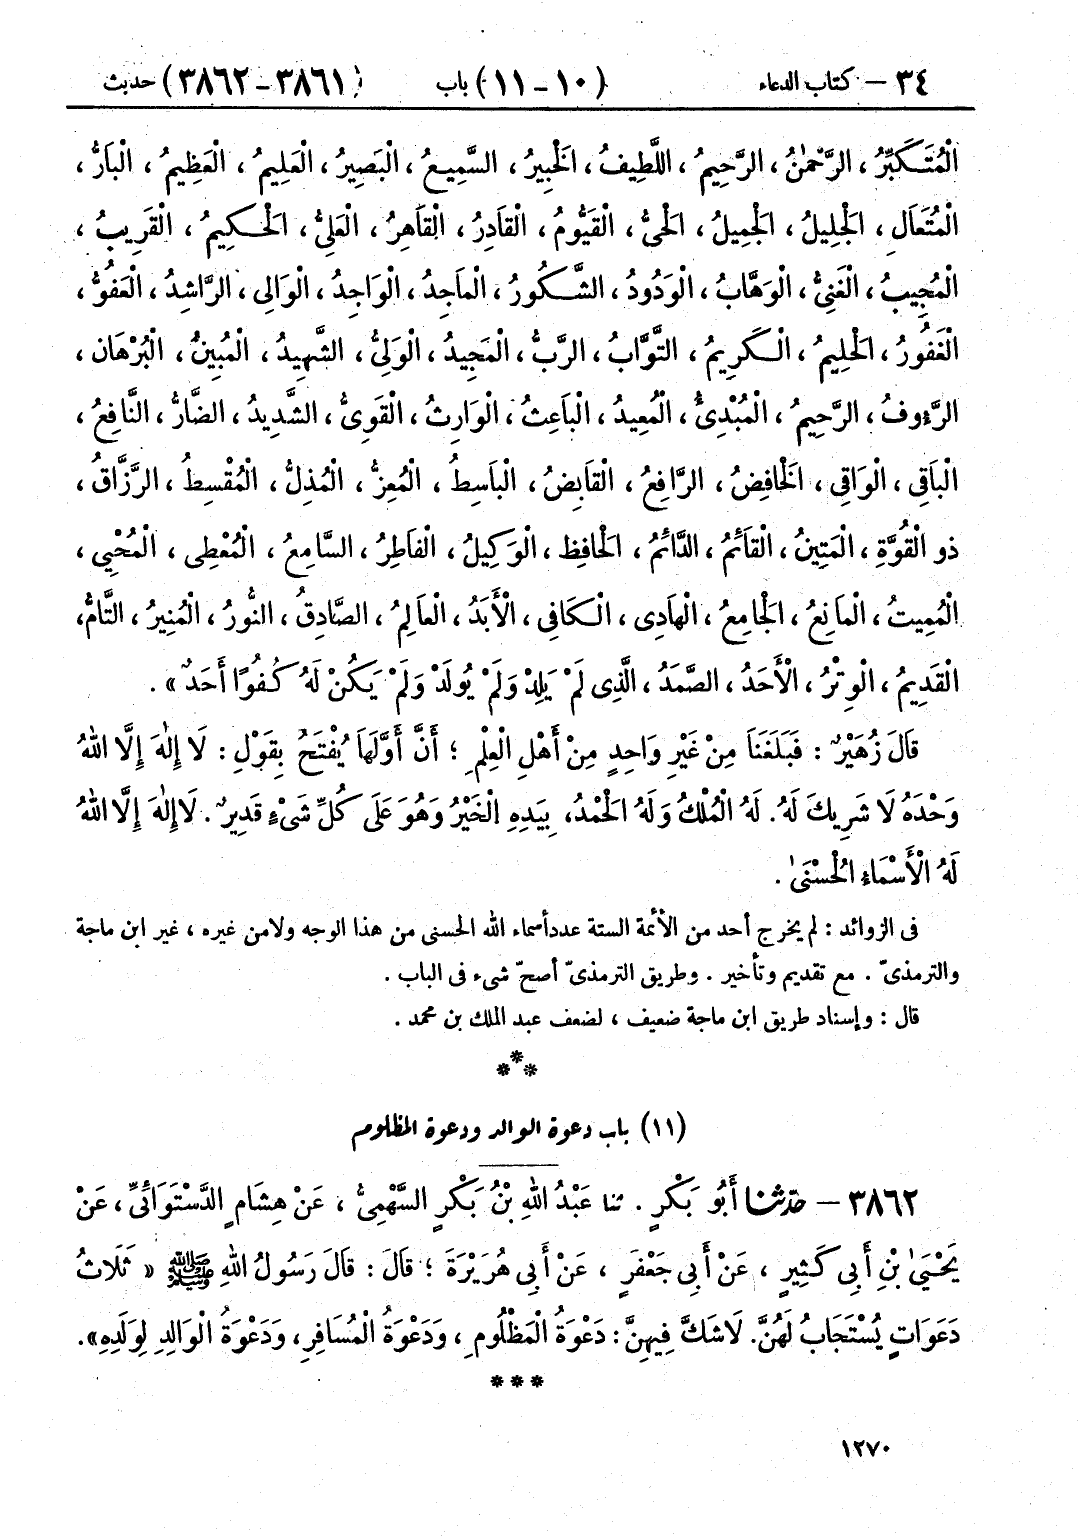 ٣٤ – كتاب الدعاء (١٠ – ١١) باب (٣٨٦١ – ٣٨٦٢) حديث
الْمُتَكَبِّرُ ، الرَّحْمٰنُ ، الرَّحِيمُ ، اللَّطِيفُ ، الْخَبِيرُ ، السَّمِيعُ ، الْبَصِيرُ ، الْعَلِيمُ ، الْعَظِيمُ ، الْبَارُّ ،
الْمُتَعَالِ ، الْجَلِيلُ ، الْجَمِيلُ ، الْحَىُّ ، الْقَيُّومُ ، الْقَادِرُ ، الْقَاهِرُ ، الْعَلِىُّ ، الْحَكِيمُ ، الْقَرِيبُ ،
الْمُجِيبُ ، الْغَنِىُّ ، الْوَهَّابُ ، الْوَدُودُ ، الشَّكُورُ ، الْمَاجِدُ ، الْوَاجِدُ ، الْوَالِى ، الرَّاشِدُ ، الْعَفُوُّ ،
الْغَفُورُ ، الْحَلِيمُ ، الْكَرِيمُ ، التَّوَّابُ ، الرَّبُّ ، الْمَجِيدُ ، الْوَلِىُّ ، الشَّهِيدُ ، الْمُبِينُ ، الْبُرْهَان ،
الرَّءُوفُ ، الرَّحِيمُ ، الْمُبْدِئُ ، الْمُعِيدُ ، الْبَاعِثُ ، الْوَارِثُ ، الْقَوِىُّ ، الشَّدِيدُ ، الضَّارُّ ، النَّافِعُ ،
الْبَاقِى ، الْوَاقِى ، الْخَافِضُ ، الرَّافِعُ ، الْقَابِضُ ، الْبَاسِطُ ، الْمُعِزُّ ، الْمُذِلُّ ، الْمُقْسِطُ ، الرَّزَّاقُ ،
ذو الْقُوَّةِ ، الْمَتِينُ ، الْقَائِمُ ، الدَّائِمُ ، الْحَافِظ ، الْوَكِيلُ ، الْفَاطِرُ ، السَّامِعُ ، الْمُعْطِى ، الْمُحْيِى ،
الْمُمِيتُ ، الْمَانِعُ ، الْجَامِعُ ، الْهَادِى ، الْكَافِى ، الْأَبَدُ ، الْعَالِمُ ، الصَّادِقُ ، النُّورُ ، الْمُنِيرُ ، التَّامُّ ،
الْقَدِيمُ ، الْوِتْرُ ، الْأَحَدُ ، الصَّمَدُ ، الَّذِى لَمْ يَلِدْ وَلَمْ يُولَدْ وَلَمْ يَكُنْ لَهُ كُفُوًا أَحَدٌ » .
قَالَ زُهَيْرٌ : فَبَلَغَنَا مِنْ غَيْرِ وَاحِدٍ مِنْ أَهْلِ الْعِلْمِ ؛ أَنَّ أَوَّلَهَا يُفْتَحُ بِقَوْلِ : لَا إِلٰهَ إِلَّا اللهُ
وَحْدَهُ لَا شَرِيكَ لَهُ . لَهُ الْمُلْكُ وَلَهُ الْحَمْدُ ، بِيَدِهِ الْخَيْرُ وَهُوَ عَلَى كُلِّ شَىْءٍ قَدِيرٌ . لَا إِلٰهَ إِلَّا اللهُ
لَهُ الْأَسْمَاءِ الْحُسْنَىٰ .
فى الزوائد : لم يخرج أحد من الأئمة الستة عدد أسماء الله الحسنى من هذا الوجه ولا من غيره ، غير ابن ماجة
والترمذىّ . مع تقديم وتأخير . وطريق الترمذىّ أصحّ شىء فى الباب .
قال : وإسناد طريق ابن ماجة ضعيف ، لضعف عبد الملك بن محمد .
***
(١١) باب دعوة الوالد ودعوة المظلوم
٣٨٦٢ – حدّثنا أَبُو بَكْرٍ . ثنا عَبْدُ اللهِ بْنُ بَكْرٍ السَّهْمِىُّ ، عَنْ هِشَامٍ الدَّسْتَوَائِىِّ ، عَنْ
يَحْيَىٰ بْنِ أَبِى كَثِيرٍ ، عَنْ أَبِى جَعْفَرٍ ، عَنْ أَبِى هُرَيْرَةَ ؛ قَالَ : قَالَ رَسُولُ اللهِ ﷺ « ثَلَاثُ
دَعَوَاتٍ يُسْتَجَابُ لَهُنَّ . لَا شَكَّ فِيهِنَّ : دَعْوَةُ الْمَظْلُومِ ، وَدَعْوَةُ الْمُسَافِرِ ، وَدَعْوَةُ الْوَالِدِ لِوَلَدِهِ » .
***
١٢٧٠